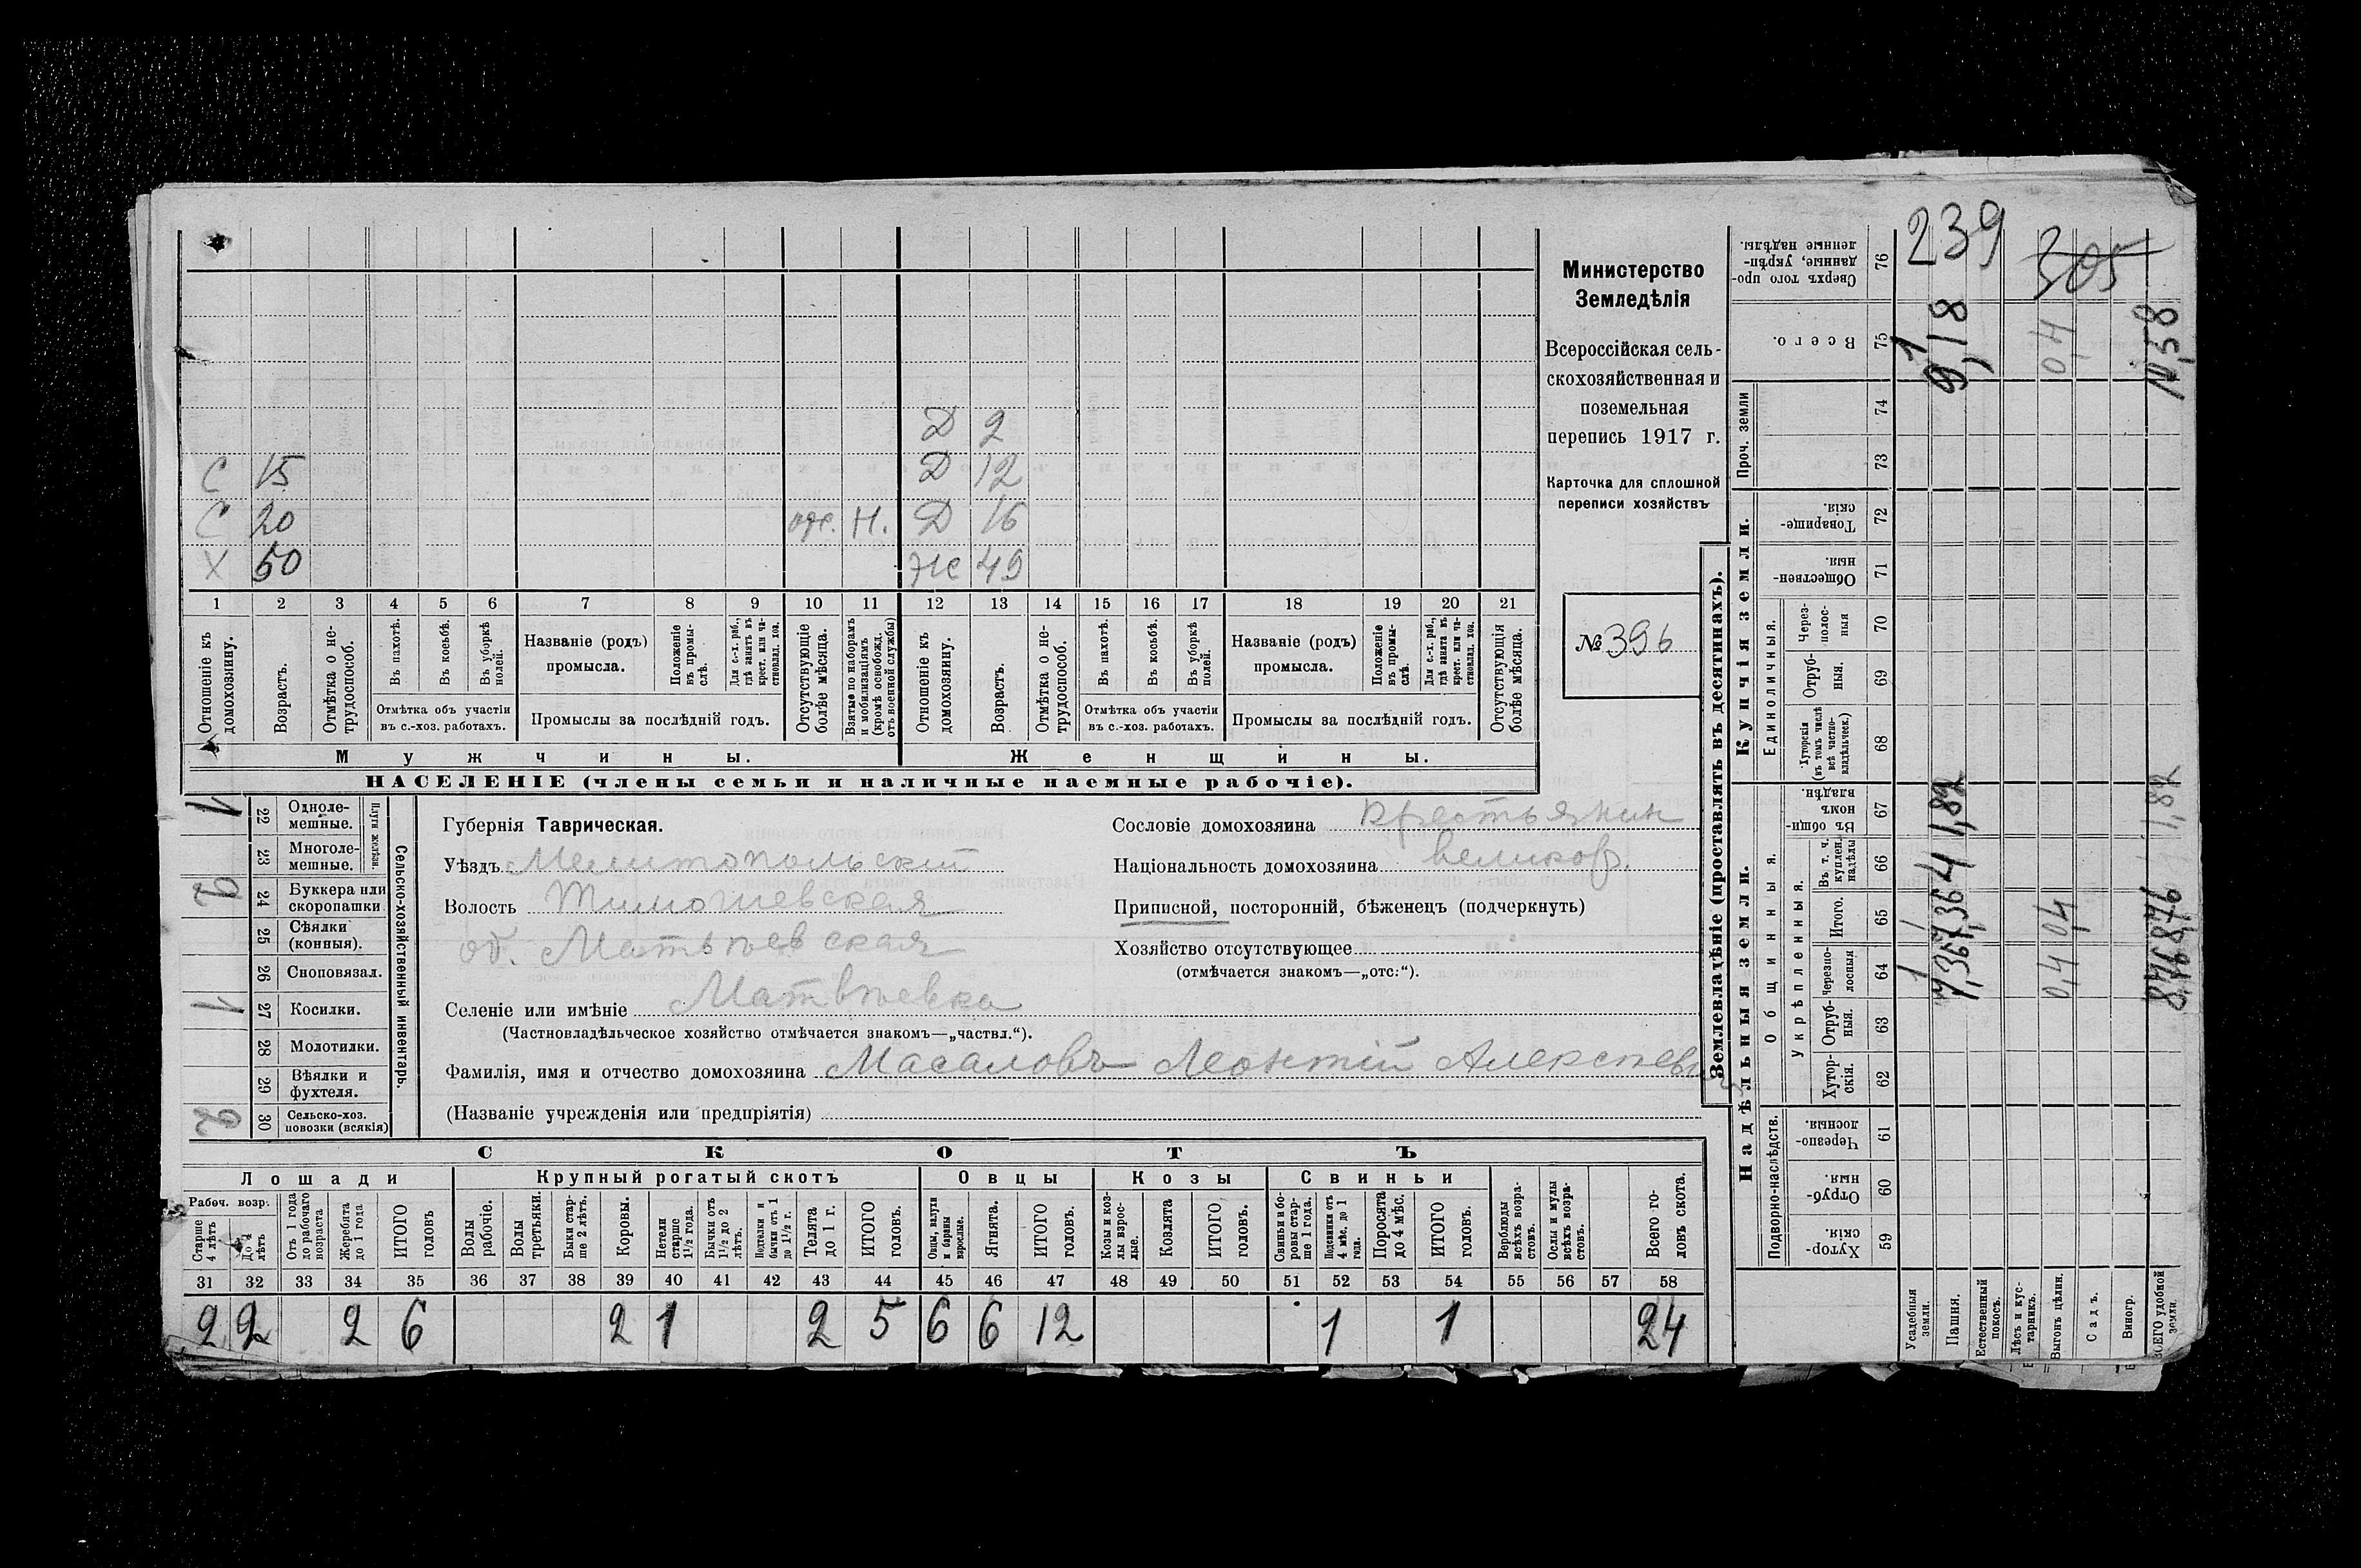 239
305
Министерство
Земледѣлія
Всероссійская сель-
скохозяйственная и
поземельная
перепись 1917 г.
Карточка для сплошной
переписи хозяйствъ
№ 396
Д 2
С 15 Д 12
С 20 Н. Д 16
Х 50 Же 49
1 2 3 4 5 6 7 8 9 10 11 12 13 14 15 16 17 18 19 20 21
Отношеніе къ домохозяину.
Возрастъ.
Отмѣтка о не-трудоспособ.
Въ пахотѣ.
Въ косьбѣ.
Въ уборкѣ полей.
Отмѣтка объ участіи въ с.-хоз. работахъ.
Названіе (родъ) промысла.
Положеніе въ промы-слѣ.
Для с.-х. раб., гдѣ занятъ въ крест. или ча-стновлад. хоз.
Промыслы за послѣдній годъ.
Отсутствующіе болѣе мѣсяца.
Взятые по наборамъ и мобилизаціямъ (кромѣ освобожд. отъ военной службы)
Отношеніе къ домохозяину.
Возрастъ.
Отмѣтка о не-трудоспособ.
Въ пахотѣ.
Въ косьбѣ.
Въ уборкѣ полей.
Отмѣтка объ участіи въ с.-хоз. работахъ.
Названіе (родъ) промысла.
Положеніе въ промы-слѣ.
Для с.-х. раб., гдѣ занята въ крест. или ча-стновлад. хоз.
Промыслы за послѣдній годъ.
Отсутствующія болѣе мѣсяца.
Мужчины. Женщины.
НАСЕЛЕНІЕ (члены семьи и наличные наемные рабочіе).
Сельско-хозяйственный инвентарь.
Плуги желѣзн.
22 Одноле-мешные. 1
23 Многоле-мешные.
24 Буккера или скоропашки
25 Сѣялки (конныя).
26 Сноповязал.
27 Косилки. 1
28 Молотилки.
29 Вѣялки и фухтеля.
30 Сельско-хоз. повозки (всякія) 2
Губернія Таврическая.
Уѣздъ Мелитопольскій
Волость Тимошевская
об. Матвѣевская
Селеніе или имѣніе Матвѣевка
(Частновладѣльческое хозяйство отмѣчается знакомъ—„частвл.“).
Фамилія, имя и отчество домохозяина Масаловъ Леонтій Алексѣев
(Названіе учрежденія или предпріятія)
Сословіе домохозяина крестьянин
Національность домохозяина великор.
Приписной, посторонній, бѣженецъ (подчеркнуть)
Хозяйство отсутствующее
(отмѣчается знакомъ—„отс:“).
СКОТЪ
Лошади Крупный рогатый скотъ Овцы Козы Свиньи
Рабоч. возр.
Старше 4 лѣтъ
До 4 лѣтъ
Отъ 1 года до рабочаго возраста
Жеребята до 1 года
ИТОГО головъ
Волы рабочіе.
Волы третьяки.
Быки стар-ше 2 лѣтъ.
Коровы.
Нетели старше 1½ года.
Бычки отъ 1½ до 2 лѣтъ.
Подтелки и бычки отъ 1 до 1½ г.
Телята до 1 г.
ИТОГО головъ.
Овцы, валухи и бараны взрослые.
Ягнята.
ИТОГО головъ.
Козы и коз-лы взрос-лые.
Козлята
ИТОГО головъ.
Свиньи и бо-ровы стар-ше 1 года.
Подсвинки отъ 4 мѣс. до 1 года.
Поросята до 4 мѣс.
ИТОГО головъ.
Верблюды всѣхъ возра-стовъ.
Ослы и мулы всѣхъ возра-стовъ.
Всего го-ловъ скота.
31 32 33 34 35 36 37 38 39 40 41 42 43 44 45 46 47 48 49 50 51 52 53 54 55 56 57 58
2 2 2 6 2 1 2 5 6 6 12 1 1 24
Землевладѣніе (проставлять въ десятинахъ).
Купчія земли.
Надѣльныя земли.
76 Сверхъ того про-данные, укрѣп-ленные надѣлы.
75 Всего. 1 9,18 0,4
Проч. земли
74
73
72 Товарище-скія.
71 Обществен-ныя.
Единоличныя.
70 Через-полос-ныя
69 Отруб-ныя.
68 Хуторскія (въ томъ числѣ всѣ частно-владѣльческ.)
Общинныя.
67 Въ общи-номъ владѣн. 1,82 1,82
Укрѣпленныя.
66 Въ т. ч. куплен. надѣлы
65 Итого. 1 7,36 0,4
64 Черезпо-лосныя 1 7,36 0,4
63 Отруб-ныя.
62 Хутор-скія.
Подворно-наслѣдств.
61 Черезпо-лосныя.
60 Отруб-ныя.
59 Хутор-скія.
Усадебныя земли.
Пашня.
Естественный покосъ.
Лѣсъ и кус-тарникъ.
Выгонъ цѣлин.
Садъ.
Виногр.
ВСЕГО удобной земли.